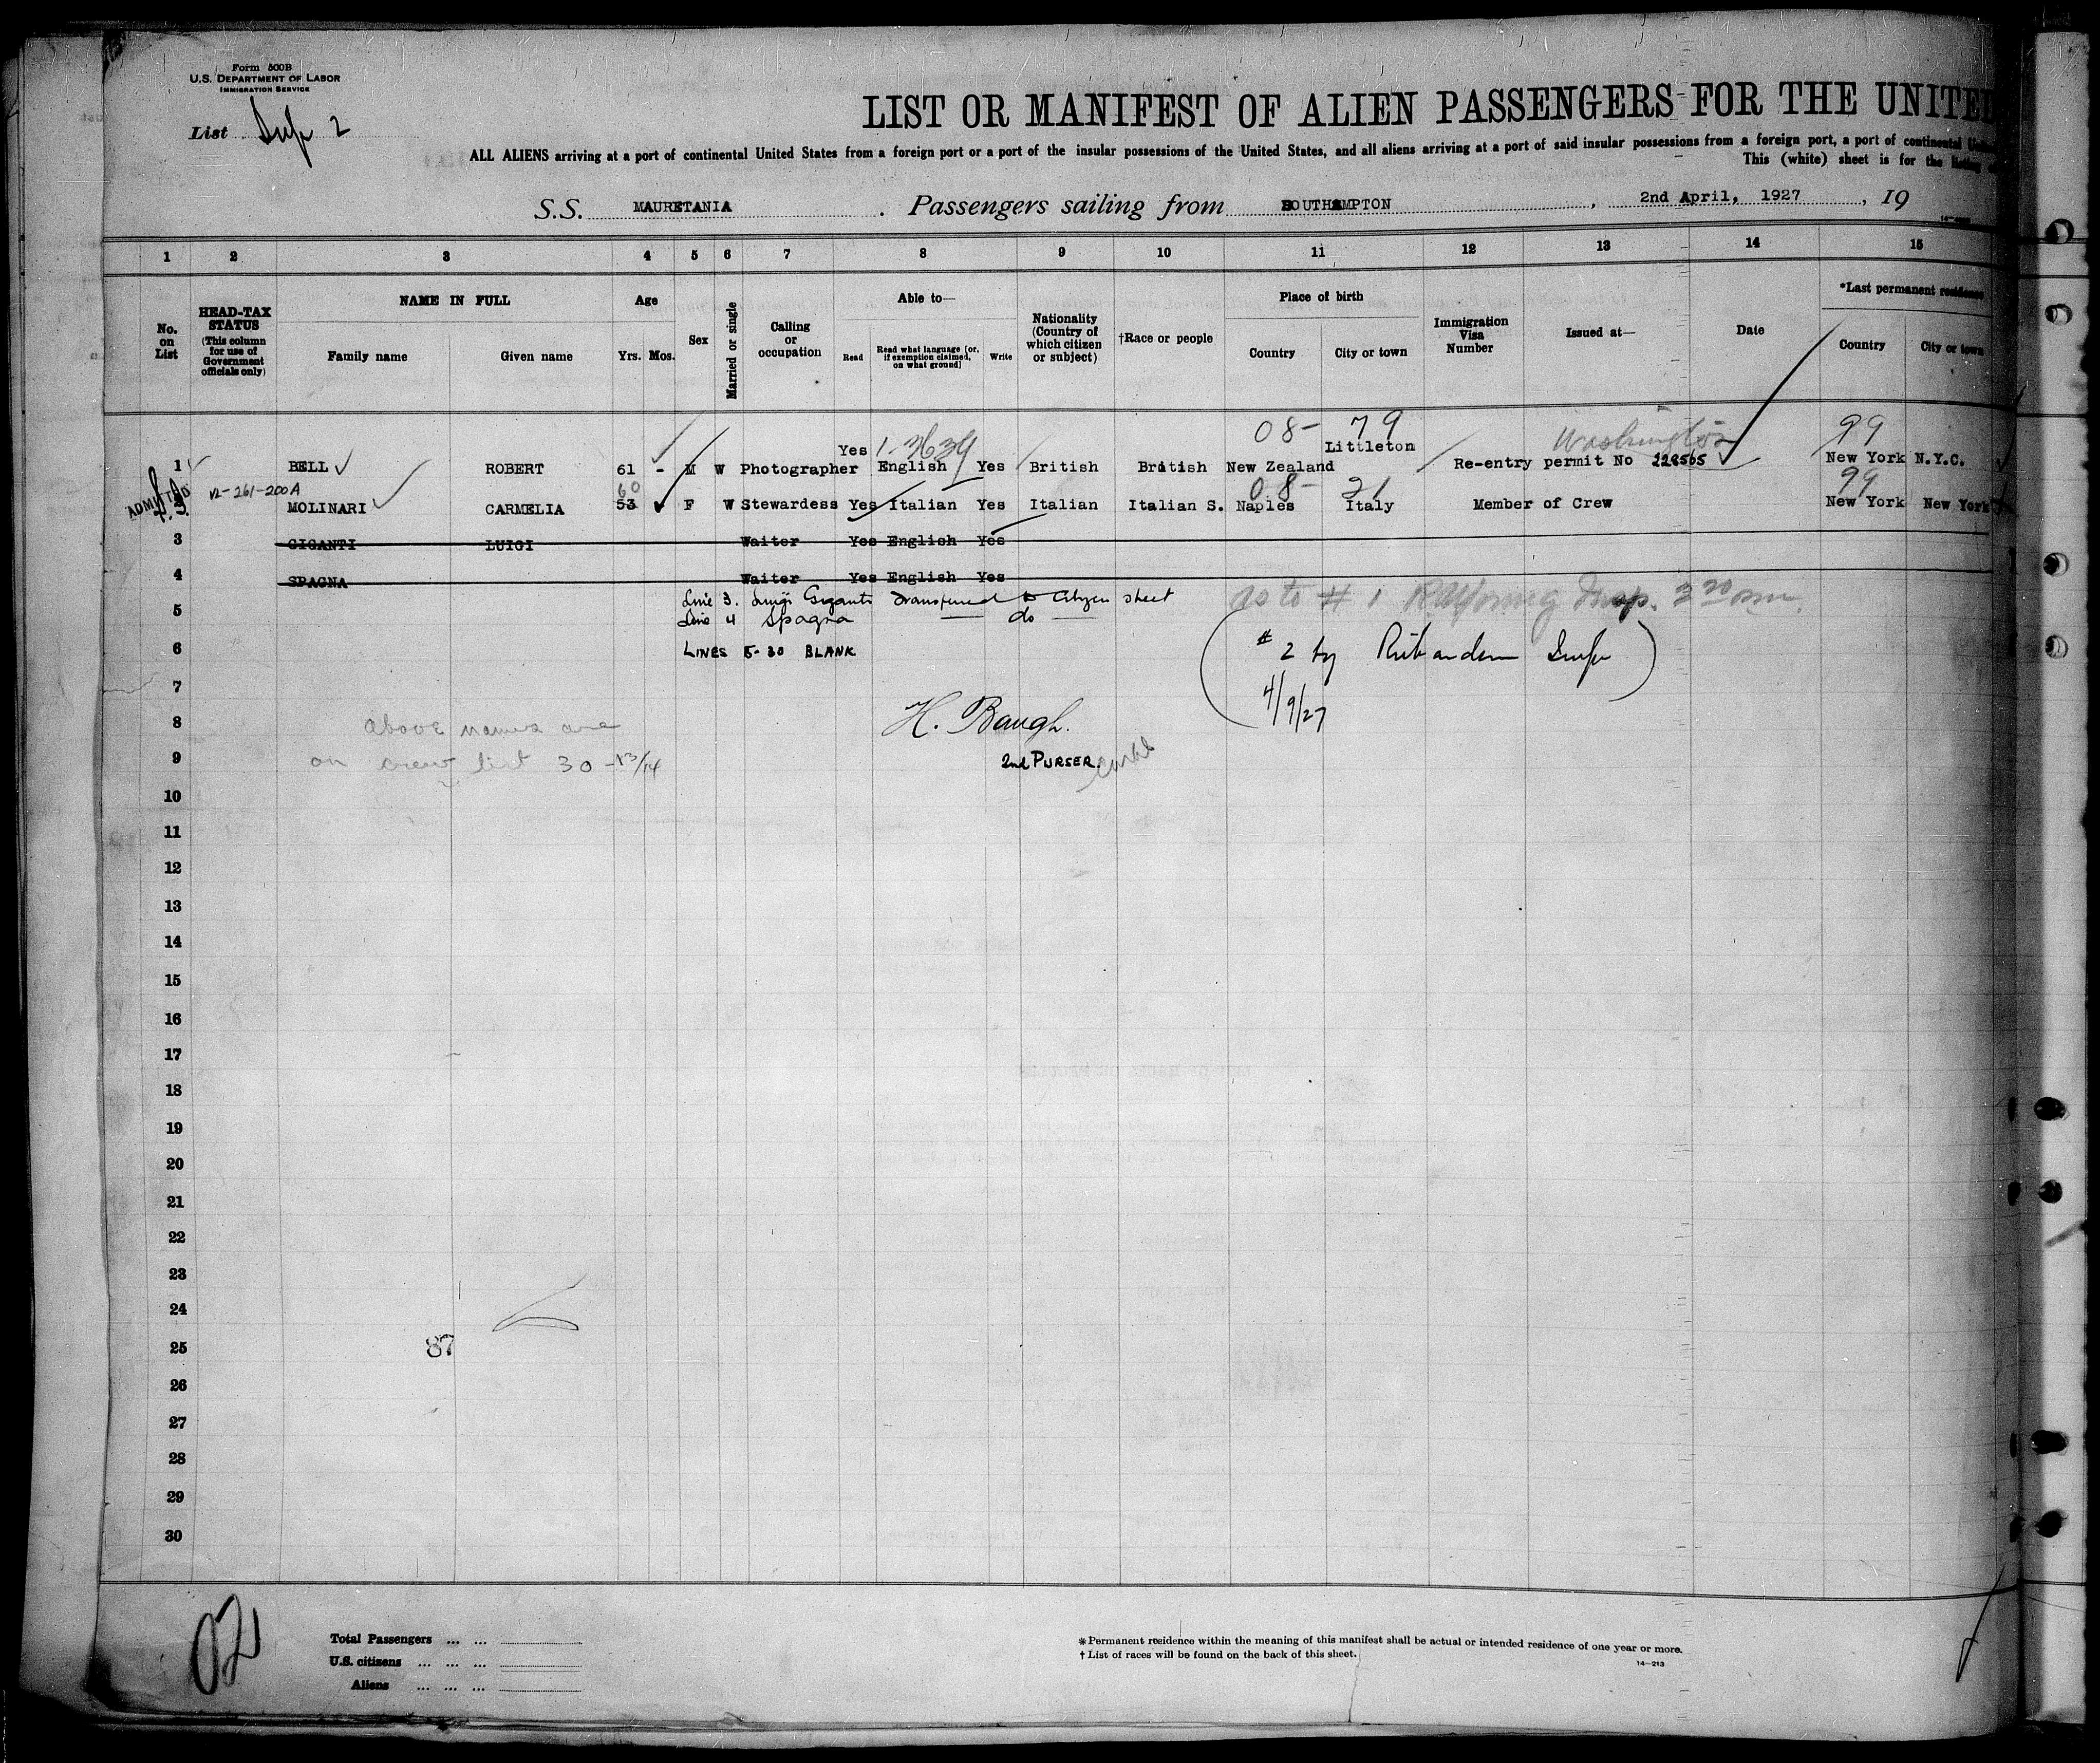 Form 500B
U.S. DEPARTMENT OF LABOR
IMMIGRATION SERVICE
List Sup 2
LIST OR MANIFEST OF ALIEN PASSENGERS FOR THE UNITED
ALL ALIENS arriving at a port of continental United States from a foreign port or a port of the insular possessions of the United States, and all aliens arriving at a port of said insular possessions from a foreign port, a port of continental
This (white) sheet is for the listing
S.S. MAURETANIA . Passengers sailing from SOUTHAMPTON , 2nd April, 1927 , 19
1 2 3 4 5 6 7 8 9 10 11 12 13 14 15
No. on List
HEAD-TAX STATUS (This column for use of Government officials only)
NAME IN FULL
Family name Given name
Age
Yrs. Mos.
Sex
Married or single
Calling or occupation
Able to—
Read Read what language [or, if exemption claimed, on what ground] Write
Nationality (Country of which citizen or subject)
†Race or people
Place of birth
Country City or town
Immigration Visa Number
Issued at—
Date
*Last permanent residence
Country City or town
08- 79 Washington 99
Yes 1-3639 Littleton
1 BELL ROBERT 61 - M W Photographer English Yes British British New Zealand Re-entry permit No 228565 New York N.Y.C.
ADMITTED V2-261-200A 60 08- 21 99
MOLINARI CARMELIA 53 F W Stewardess Yes Italian Yes Italian Italian S. Naples Italy Member of Crew New York New York
3 GIGANTI LUIGI Waiter Yes English Yes
4 SPAGNA Waiter Yes English Yes
Line 3. Luigi Giganti Transferred to Citizen sheet
as to # 1 Insp. 3 20 pm.
5 Line 4 Spagna do
6 LINES 5-30 BLANK
# 2 by Insp
7 4/9/27
8 above names are H. Baugh.
9 on crew list 30-13/14 2nd PURSER.
10
11
12
13
14
15
16
17
18
19
20
21
22
23
24
25 87
26
27
28
29
30
02
Total Passengers ... ...
U.S. citizens ... ... ...
Aliens ... ... ...
* Permanent residence within the meaning of this manifest shall be actual or intended residence of one year or more.
† List of races will be found on the back of this sheet.
14—213